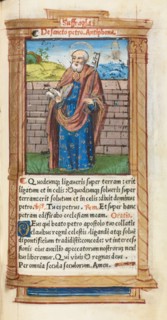 Suffragia
De sancto petro. Antiphona.
Quodcunqz ligaveris super terram: erit
ligatum et in celis: et quodcunqz solveris super
terram: erit solutum et in celis: dicit dominus
petro. Tu es petrus. Et super hanc
petram edificabo ecclesiam meam. Oratio.
Deus qui beato petro apostolo tuo collatis
clavibus regni celestis: ligandi atqz solvendi
pontificium tradidisti: concede: ut interces
sionis eius auxilio: a peccatorum nostrorum nexi
bus liberemur. Qui vivis et regnas deus
Per omnia secula seculorum. Amen.